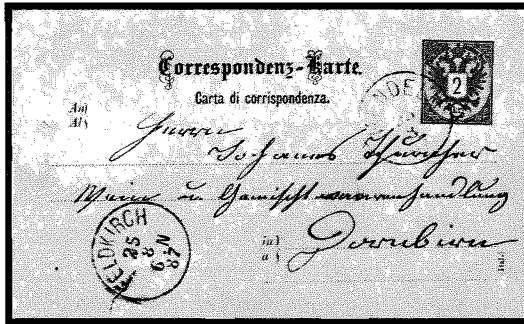 Correspondenz-Karte.
Carta di corrispondenza.
2
An
Al
Herrn
Johanes Thurnher
Wein u. Gemischtwaarenhandlung
in
a
Dornbirn
FELDKIRCH
25
8
6-N
87